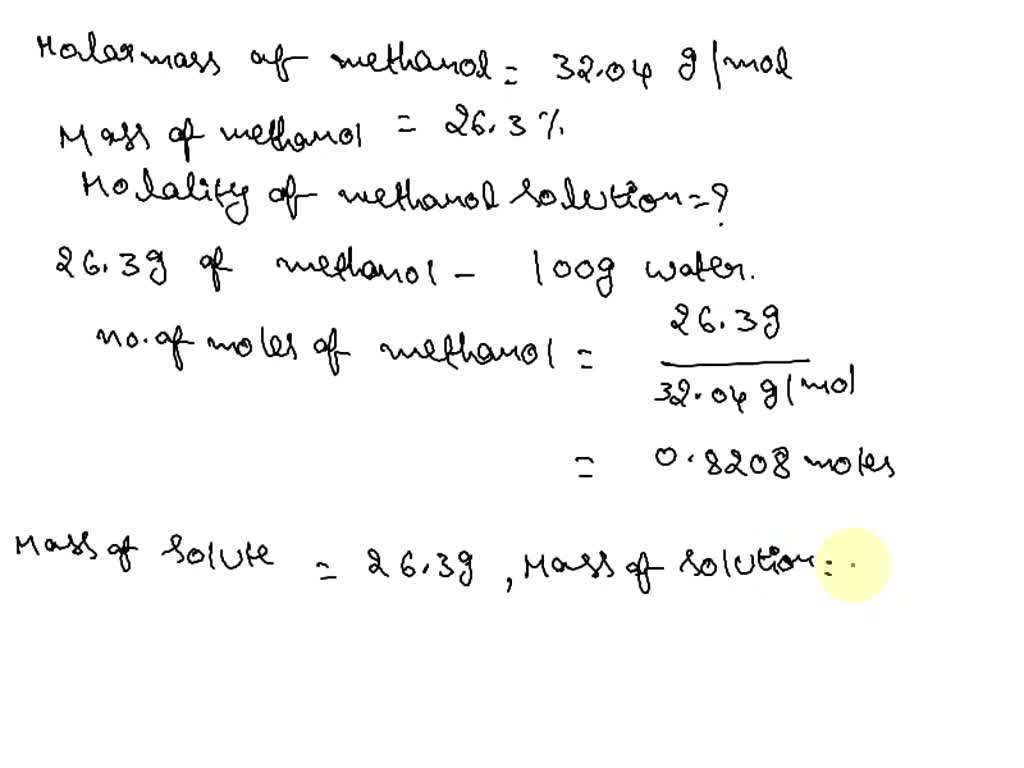 Molarmass of methanol = 32.04 g/mol
Mass of methanol = 26.3%
Molality of methanol solution = ?
26.3g of methanol - 100g water.
no. of moles of methanol = 26.3g
32.04 g/mol
= 0.8208 moles
Mass of solute = 26.3g, Mass of solution =